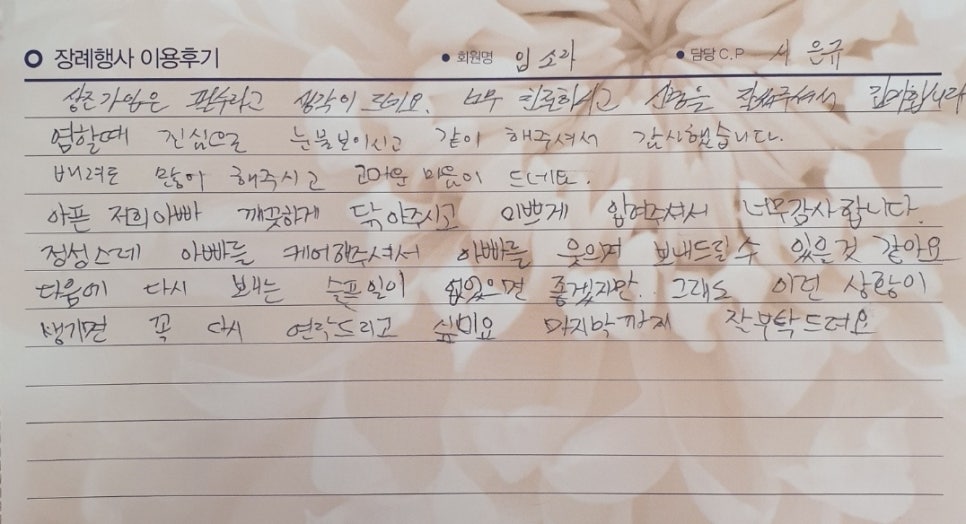 장례행사 이용후기 • 회원명 임소라 • 담당 C.P 서은규
상조가입은 필수라고 생각이 드네요. 너무 친절하시고 설명을 잘해주셔서 감사합니다
염할때 진심으로 눈물보이시고 같이 해주셔서 감사했습니다.
배려도 많이 해주시고 고마운 마음이 드네요.
아픈 저희아빠 깨끗하게 닦아주시고 이쁘게 입혀주셔서 너무감사합니다.
정성스레 아빠를 케어해주셔서 아빠를 웃으며 보내드릴수 있은것 같아요
다음에 다시 보내는 슬픈일이 없었으면 좋겠지만.. 그래도 이런 상황이
생기면 꼭 다시 연락드리고 싶네요 마지막까지 잘부탁드려요